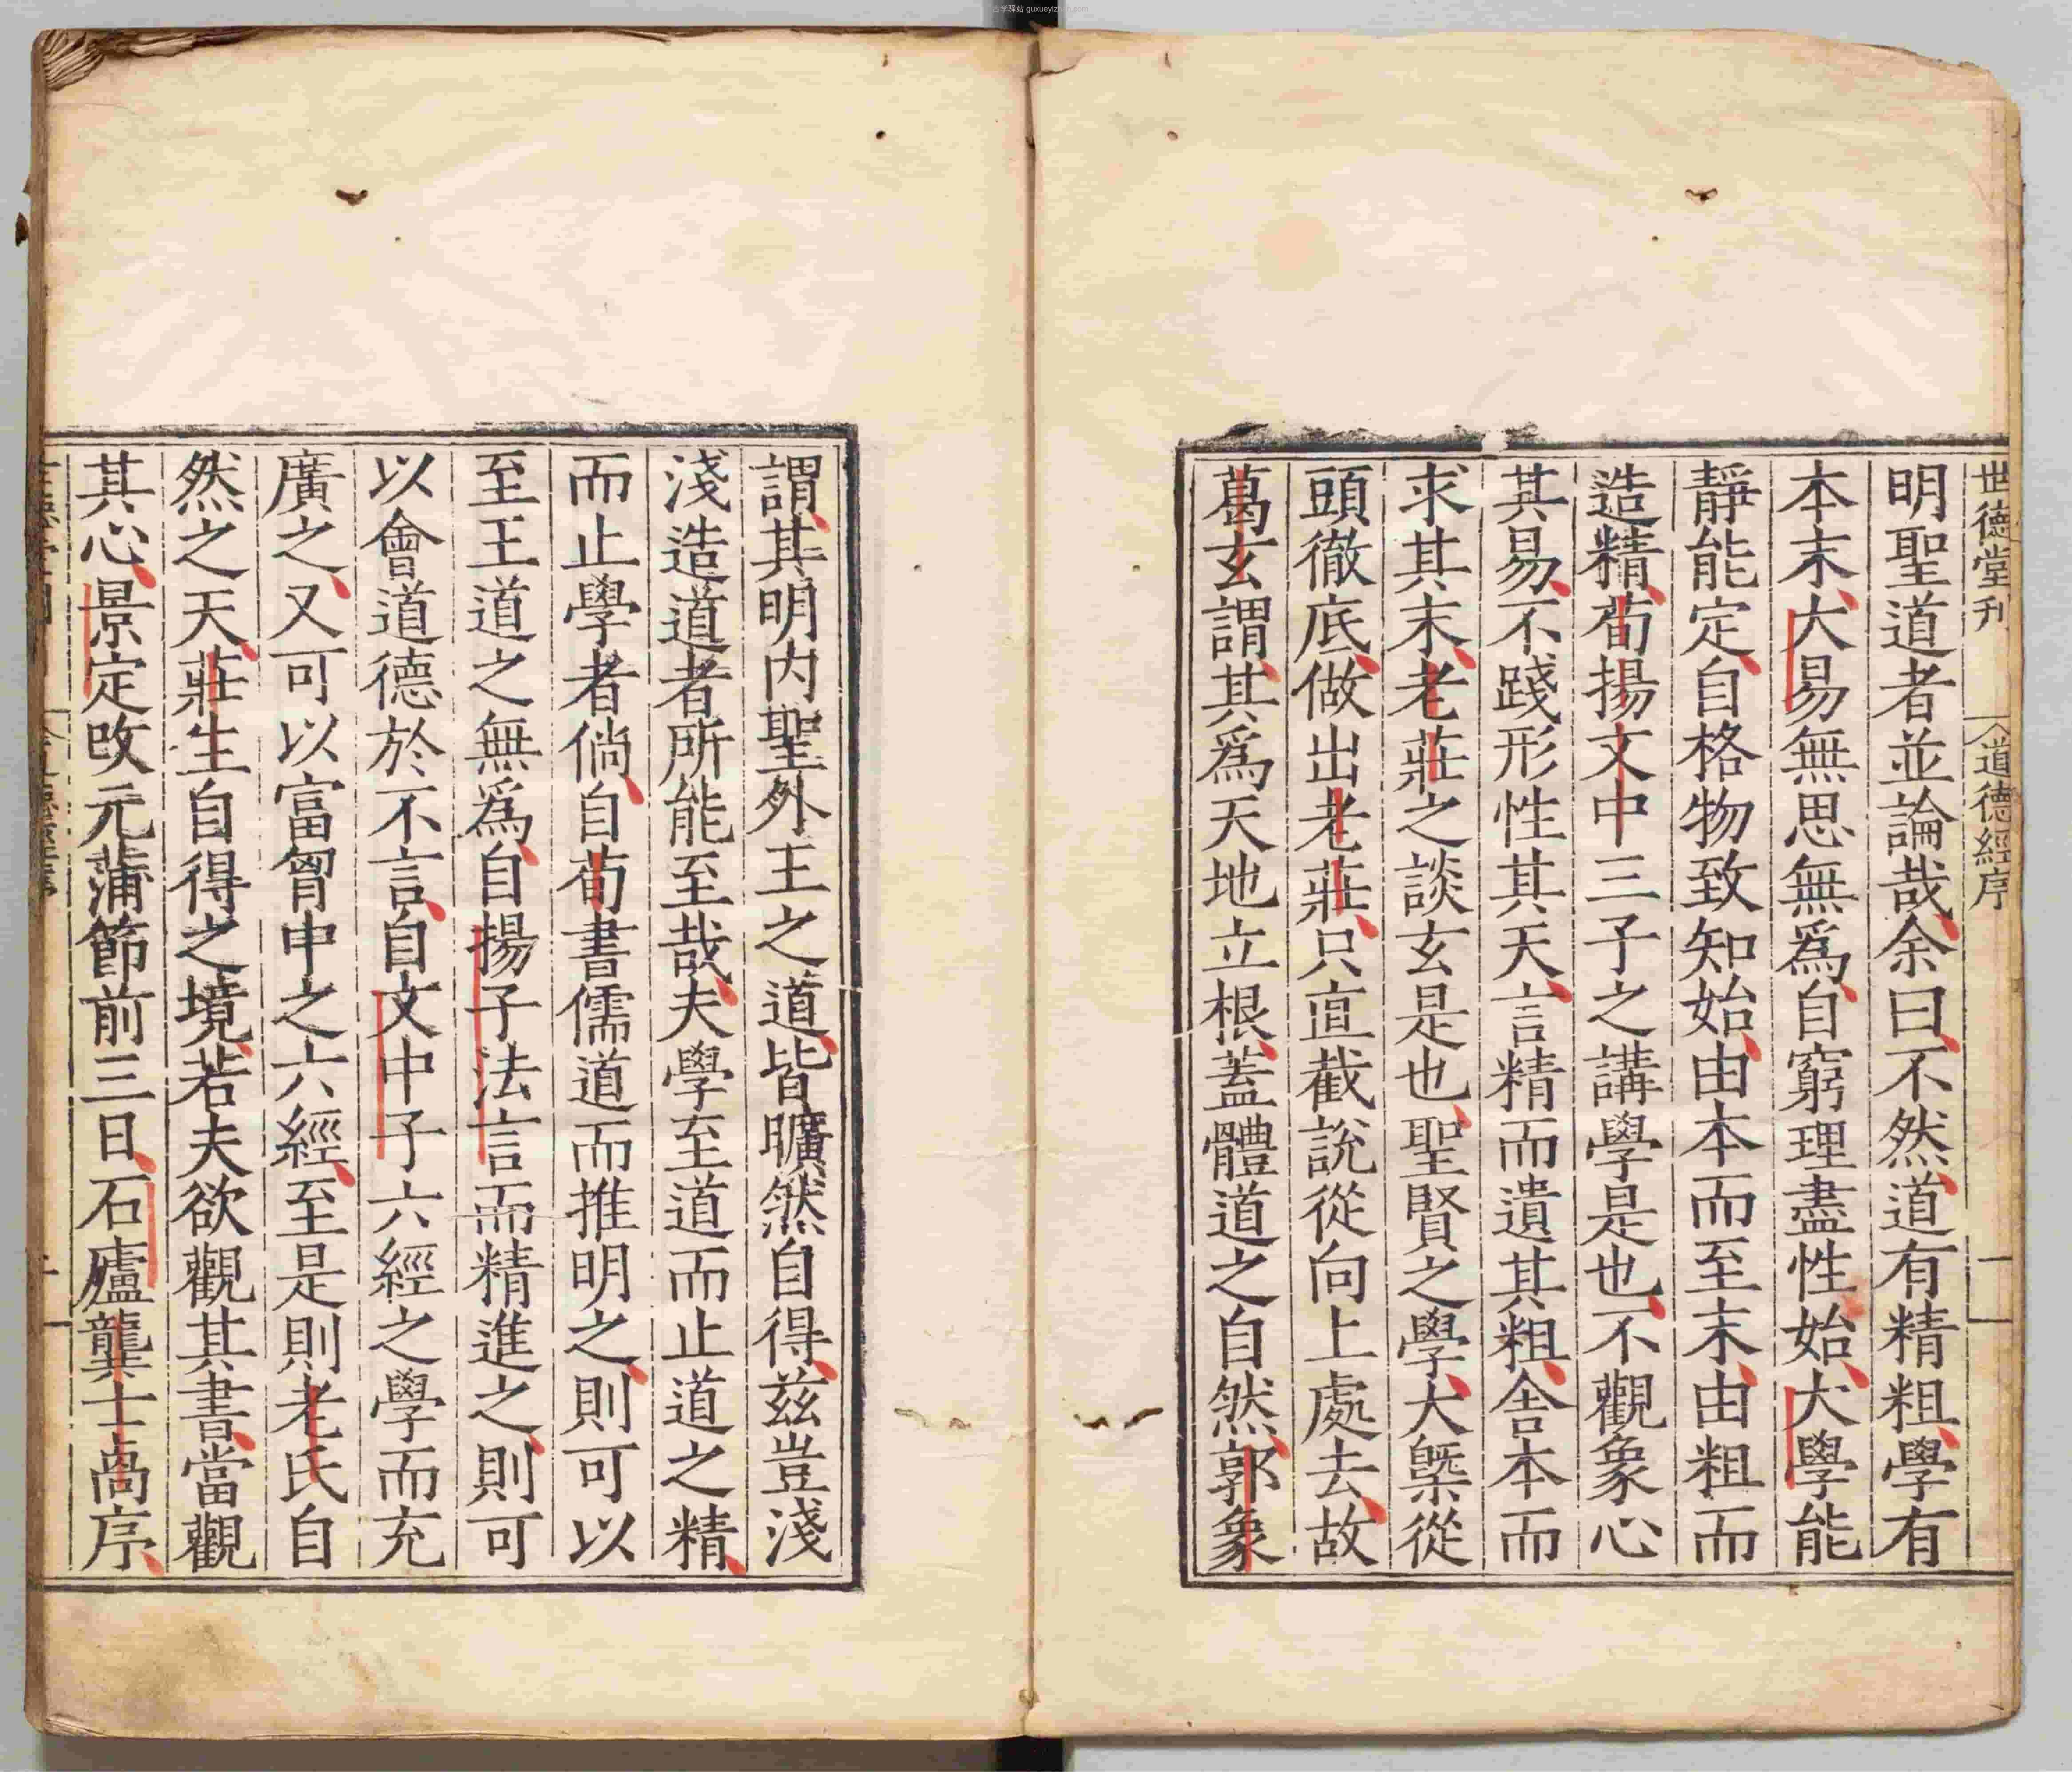 古学驿站 guxueyizhan.com
世德堂刊
道德經序
一
明聖道者並論哉余曰不然道有精粗學有
本末大易無思無爲自窮理盡性始大學能
靜能定自格物致知始由本而至末由粗而
造精荀揚文中三子之講學是也不觀象心
其易不踐形性其天言精而遺其粗舍本而
求其末老莊之談玄是也聖賢之學大槩從
頭徹底做出老莊只直截說從向上處去故
葛玄謂其爲天地立根蓋體道之自然郭象
謂其明内聖外王之道皆曠然自得兹豈淺
淺造道者所能至哉夫學至道而止道之精
而止學者倘自荀書儒道而推明之則可以
至王道之無爲自揚子法言而精進之則可
以會道德於不言自文中子六經之學而充
廣之又可以富胷中之六經至是則老氏自
然之天莊生自得之境若夫欲觀其書當觀
其心景定改元蒲節前三日石廬龔士卨序